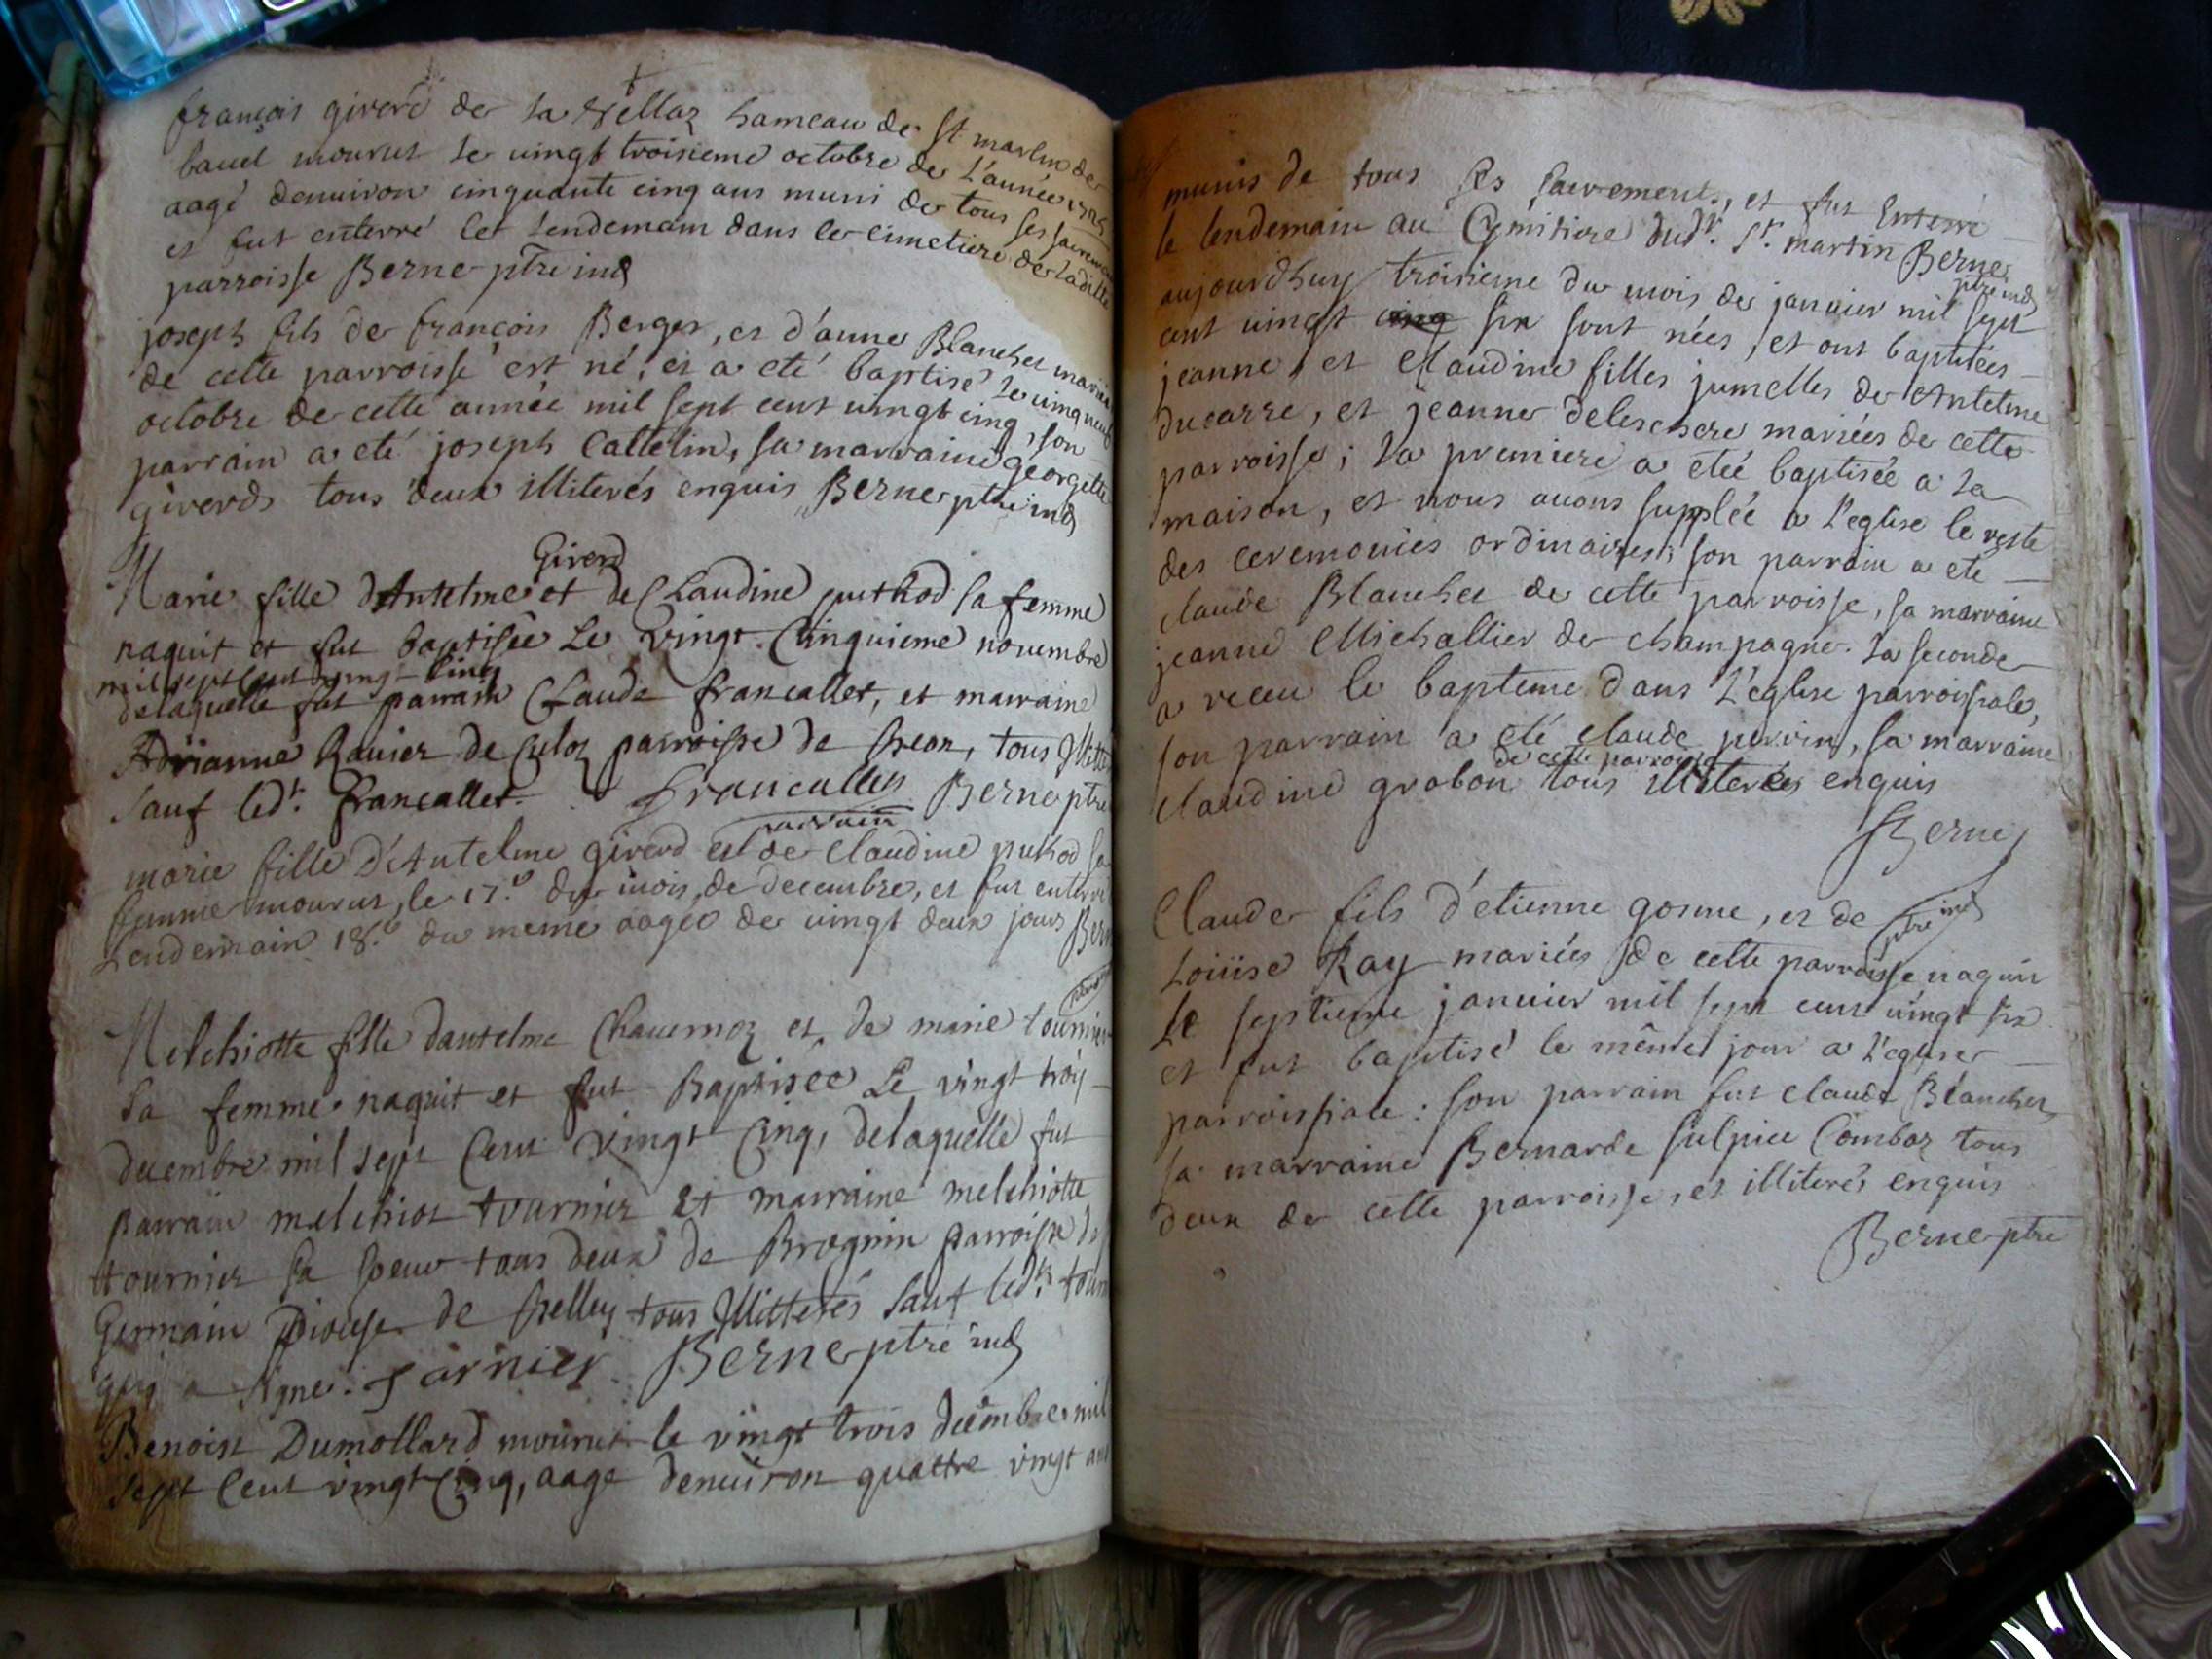 françois giverd de la vellaz hameau de St martin de
bavel mourut le vingt troisieme octobre de L'année 1725
aagé denuiron cinquante cinq ans muni de tous ses sacremens
et fut enterré le Lendemain dans le cimetiere de ladite
parroisse Berne ptre ind
joseph fils de françois Berger, et d'anne Blanchet mariés
de cette parroisse est né, et a eté baptisé le vingt neuf
octobre de cette année mil sept cent vingt cinq, son
parrain a eté joseph Cattelin, sa marraine georgette
giverd tous deux illiterés enquis Berne ptre ind
Giverd
Marie fille d'Antelme et de Claudine puthod sa femme
naquit et fut baptisée Le vingt Cinquieme novembre
mil sept cent vingt Cinq
delaquelle fut parrain Claude francallet, et marraine
Adrianne Ravier de Culoz parroisse de , tous
sauf led.t francallet. francallet Berne ptre
parrain
marie fille d'Antelme giverd et de Claudine puthod sa
femme mourut, le 17.e du mois de decembre, et fut enterré
Lendemain 18.e du meme aagée de vingt deux jours
Melchiotte fille dantelme Chavernoz et de marie tournier
sa femme naquit et fut Baptisée Le vingt troij
decembre mil sept Cent vingt Cinq, delaquelle fut
parrain melchior tournier et marraine melchiotte
tournier sa soeur tous deux de Brognin parroisse
Germain Diocese de Belley tous Illitterés sauf led.t
qui a signe. Tarnier Berne ptre ind
Benoist Dumollard mourut le vingt trois decembre mil
sept Cent vingt Cinq, aage denuiron quattre vingt ans
munis de tous ses sacrements, et fut Enterré
le lendemain au Cymitiere dud.t St. martin Berne
ptre ind
aujourdhuy troisieme du mois de janvier mil sept
cent vingt cinq six sont nées, et ont baptisées
jeanne, et Claudine filles jumelles de Antelme
ducarre, et jeanne delescherè mariées de cette
parroisse; la premiere a etée baptisée a la
maison, et nous avons supplée a L'eglise le reste
des ceremonies ordinaires; son parrain a ete
claude Blanchet de cette parroisse, sa marraine
jeanne Michallier de champagne. la seconde
a receu le bapteme dans L'eglise parroissiale,
son parrain a eté claude , sa marraine
de cette parroisse
claudine grobon tous illiterés enquis
Berne
ptre ind
Claude fils d'etienne gonne, et de
Loüise Ray mariés de cette parroisse naquit
Le septieme janvier mil sept cent vingt six
et fut baptisé le même jour a L'eglise
parroissiale: son parrain fut claude Blanchet
sa marraine Bernarde sulpice Combaz tous
deux de cette parroisse, et illiterés enquis
Berne ptre